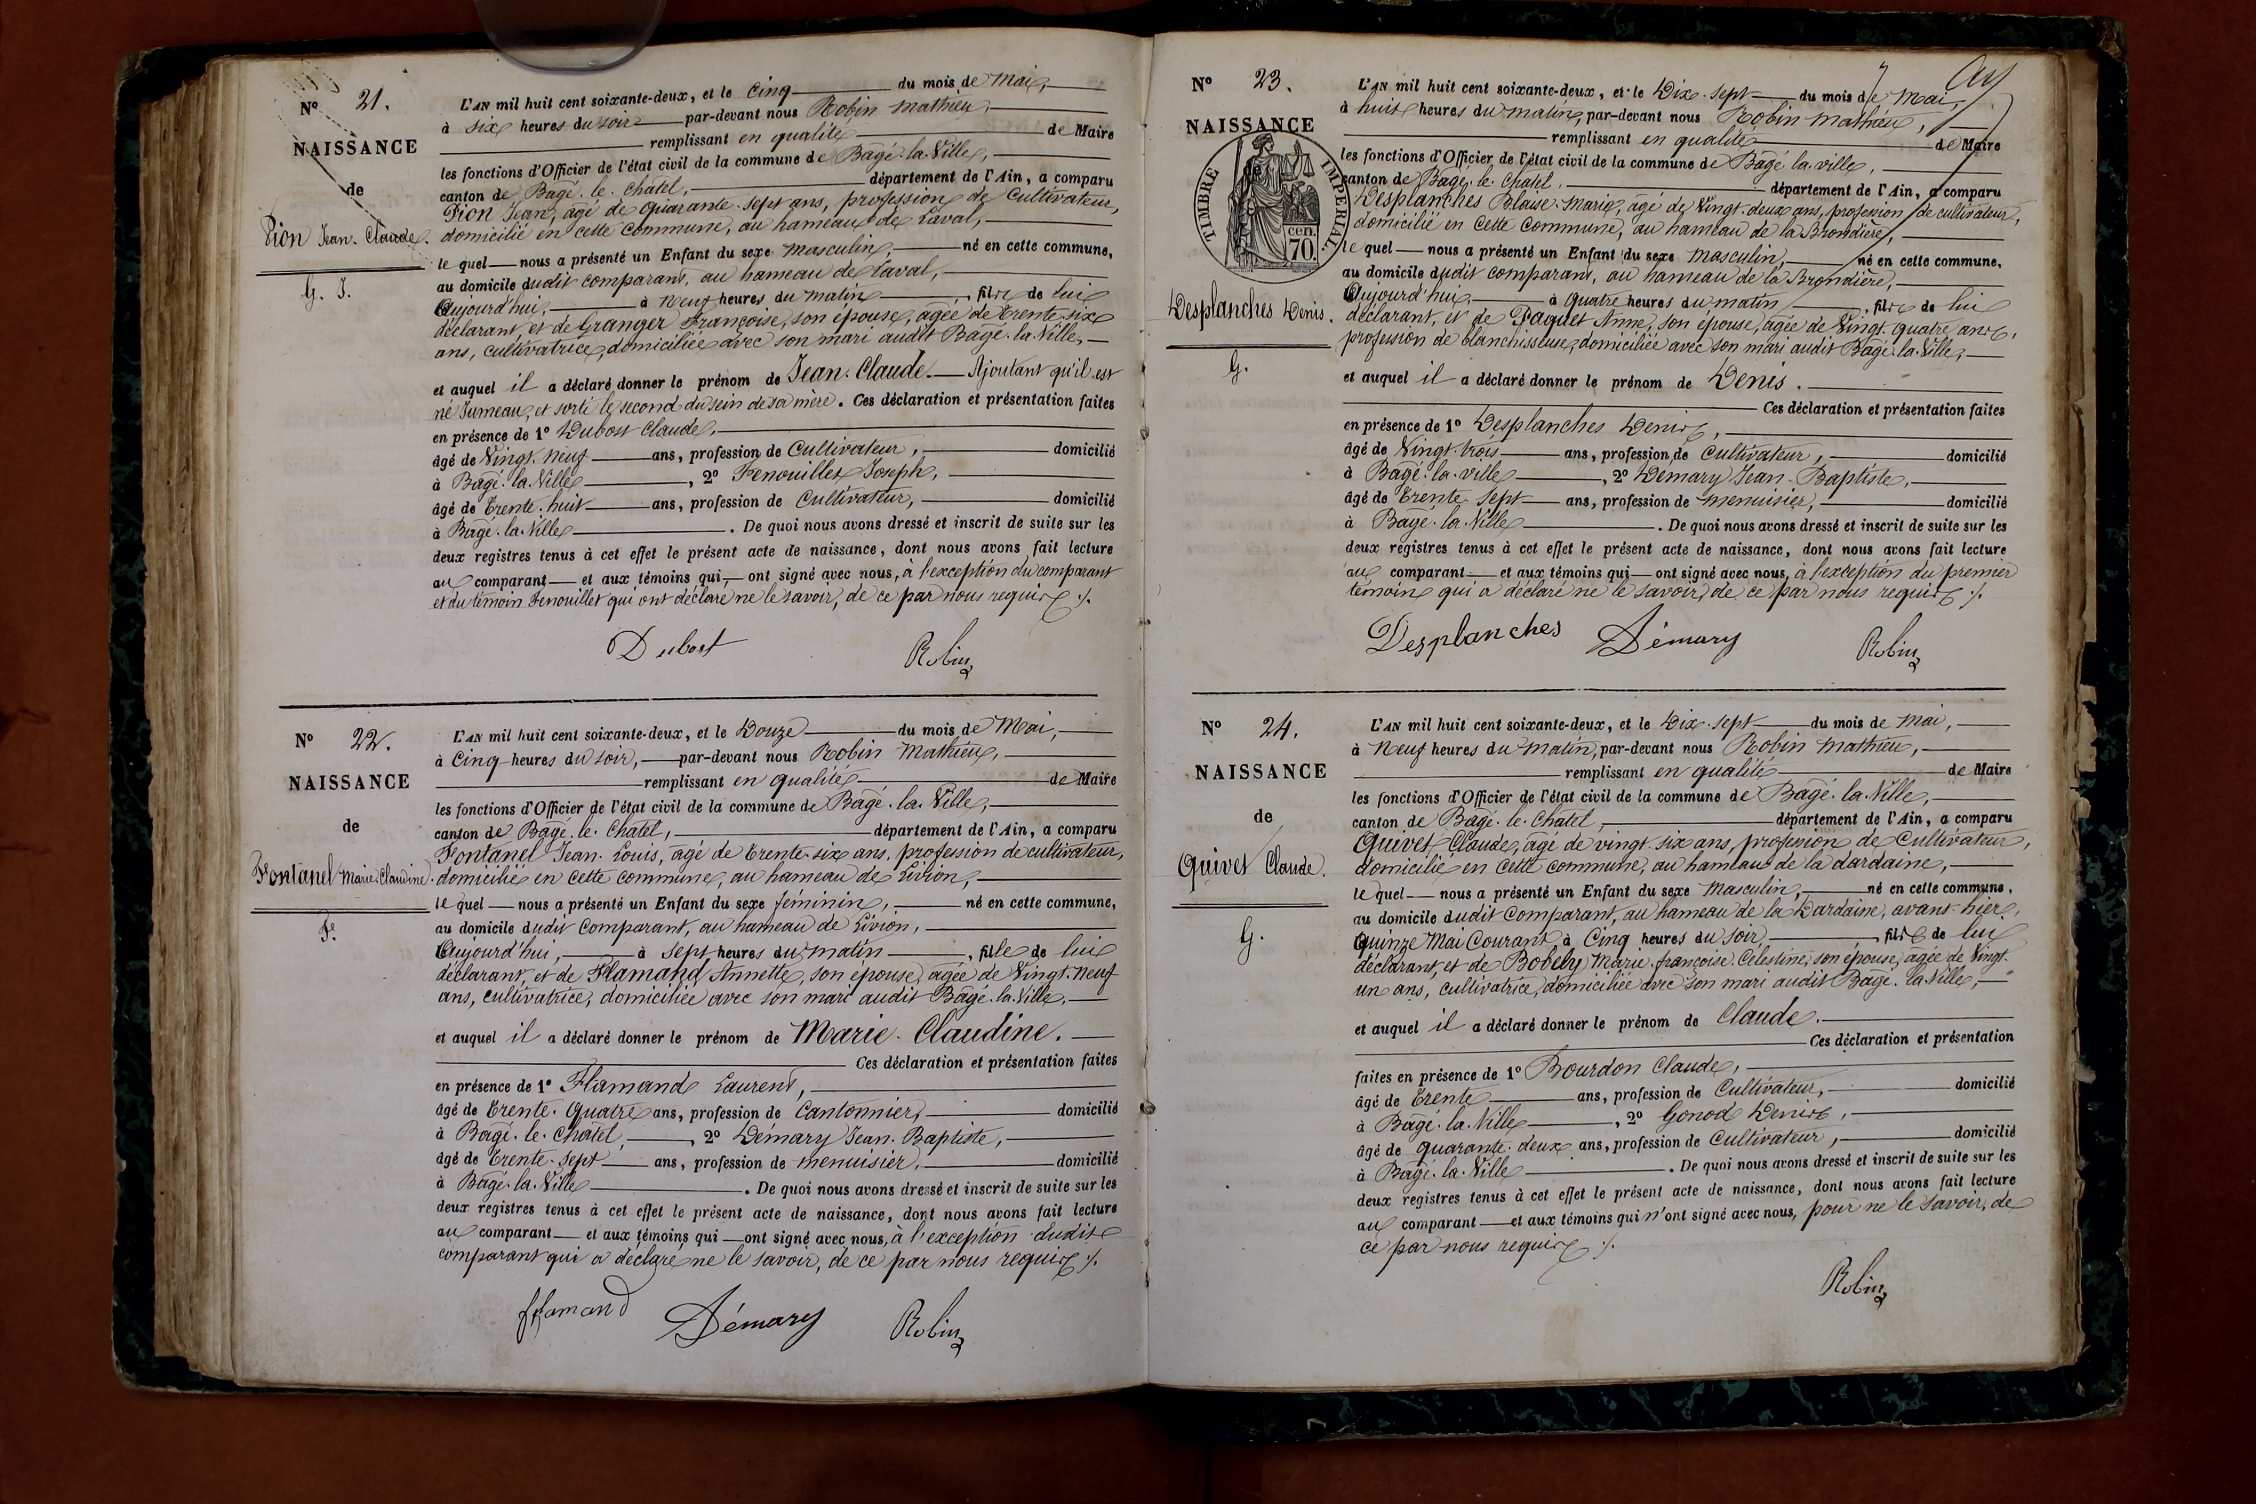 N° 21.
NAISSANCE
de
Pion Jean-Claude.
G. J.
L'AN mil huit cent soixante-deux, et le Cinq du mois de Mai,
à six heures du soir par-devant nous Robin Mathieu,
remplissant en qualité de Maire
les fonctions d'Officier de l'état civil de la commune de Bâgé-la-Ville,
canton de Bâgé-le-Châtel, département de l'Ain, a comparu
Pion Jean, âgé de quarante-sept ans, profession de Cultivateur,
domicilié en cette commune, au hameau de Laval,
le quel nous a présenté un Enfant du sexe masculin, né en cette commune,
au domicile dudit comparant, au hameau de Laval,
Aujourd'hui, à neuf heures du matin, fils de lui
déclarant, et de Granger Françoise, son épouse, âgée de trente-six
ans, cultivatrice, domiciliée avec son mari audit Bâgé-la-Ville,
et auquel il a déclaré donner le prénom de Jean-Claude. Ajoutant qu'il est
né Jumeau, et sorti le second du sein de sa mère. Ces déclaration et présentation faites
en présence de 1° Dubost Claude,
âgé de Vingt-neuf ans, profession de Cultivateur, domicilié
à Bâgé-la-Ville, 2° Fenouillet Joseph,
âgé de Trente-huit ans, profession de Cultivateur, domicilié
à Bâgé-la-Ville. De quoi nous avons dressé et inscrit de suite sur les
deux registres tenus à cet effet le présent acte de naissance, dont nous avons fait lecture
au comparant et aux témoins qui ont signé avec nous, à l'exception du comparant
et du témoin Fenouillet qui ont déclaré ne le savoir, de ce par nous requis ./.
Dubost Robin
N° 22.
NAISSANCE
de
Fontanel Marie-Claudine.
Fe.
L'AN mil huit cent soixante-deux, et le Douze du mois de Mai,
à Cinq heures du soir, par-devant nous Robin Mathieu,
remplissant en qualité de Maire
les fonctions d'Officier de l'état civil de la commune de Bâgé-la-Ville,
canton de Bâgé-le-Châtel, département de l'Ain, a comparu
Fontanel Jean-Louis, âgé de trente-six ans, profession de cultivateur,
domicilié en cette commune, au hameau de Livion,
le quel nous a présenté un Enfant du sexe féminin, né en cette commune,
au domicile dudit Comparant, au hameau de Livion,
Aujourd'hui, à sept heures du matin, fille de lui
déclarant, et de Flamand Annette, son épouse, âgée de Vingt-neuf
ans, cultivatrice, domiciliée avec son mari audit Bâgé-la-Ville,
et auquel il a déclaré donner le prénom de Marie-Claudine.
Ces déclaration et présentation faites
en présence de 1° Flamand Laurent,
âgé de Trente-Quatre ans, profession de Cantonnier, domicilié
à Bâgé-le-Châtel, 2° Démary Jean-Baptiste,
âgé de Trente-sept ans, profession de menuisier, domicilié
à Bâgé-la-Ville. De quoi nous avons dressé et inscrit de suite sur les
deux registres tenus à cet effet le présent acte de naissance, dont nous avons fait lecture
au comparant et aux témoins qui ont signé avec nous, à l'exception dudit
comparant qui a déclaré ne le savoir, de ce par nous requis ./.
fflamand Démary Robin
N° 23.
NAISSANCE
TIMBRE IMPERIAL
70 cen.
Desplanches Denis.
G.
L'AN mil huit cent soixante-deux, et le Dix-sept du mois de Mai,
à huit heures du matin, par-devant nous Robin Mathieu,
remplissant en qualité de Maire
les fonctions d'Officier de l'état civil de la commune de Bâgé-la-Ville,
canton de Bâgé-le-Châtel, département de l'Ain, a comparu
Desplanches Blaise-Marie, âgé de Vingt-deux ans, profession de cultivateur,
domicilié en cette commune, au hameau de la Brondière,
le quel nous a présenté un Enfant du sexe masculin, né en cette commune,
au domicile dudit comparant, au hameau de la Brondière,
Aujourd'hui, à Quatre heures du matin, fils de lui
déclarant, et de Paquet Anne, son épouse, âgée de Vingt-quatre ans,
profession de blanchisseuse, domiciliée avec son mari audit Bâgé-la-Ville,
et auquel il a déclaré donner le prénom de Denis.
Ces déclaration et présentation faites
en présence de 1° Desplanches Denis,
âgé de Vingt-trois ans, profession de Cultivateur, domicilié
à Bâgé-la-ville, 2° Démary Jean-Baptiste,
âgé de Trente-sept ans, profession de menuisier, domicilié
à Bâgé-la-Ville. De quoi nous avons dressé et inscrit de suite sur les
deux registres tenus à cet effet le présent acte de naissance, dont nous avons fait lecture
au comparant et aux témoins qui ont signé avec nous, à l'exception du premier
témoin qui a déclaré ne le savoir, de ce par nous requis ./.
Desplanches Démary Robin
N° 24.
NAISSANCE
de
Quivet Claude.
G.
L'AN mil huit cent soixante-deux, et le Dix-sept du mois de mai,
à Neuf heures du matin, par-devant nous Robin Mathieu,
remplissant en qualité de Maire
les fonctions d'Officier de l'état civil de la commune de Bâgé-la-Ville,
canton de Bâgé-le-Châtel, département de l'Ain, a comparu
Quivet Claude, âgé de vingt-six ans, profession de Cultivateur,
domicilié en cette commune, au hameau de la dardaine,
le quel nous a présenté un Enfant du sexe masculin, né en cette commune,
au domicile dudit comparant, au hameau de la Dardaine, avant-hier,
quinze Mai Courant, à Cinq heures du soir, fils de lui
déclarant, et de Bobély Marie-françoise-Célestine, son épouse, âgée de Vingt-
un ans, cultivatrice, domiciliée avec son mari audit Bâgé-la-Ville,
et auquel il a déclaré donner le prénom de Claude.
Ces déclaration et présentation
faites en présence de 1° Bourdon Claude,
âgé de Trente ans, profession de Cultivateur, domicilié
à Bâgé-la-Ville, 2° Gonod Denis,
âgé de quarante-deux ans, profession de Cultivateur, domicilié
à Bâgé-la-Ville. De quoi nous avons dressé et inscrit de suite sur les
deux registres tenus à cet effet le présent acte de naissance, dont nous avons fait lecture
au comparant et aux témoins qui n'ont signé avec nous, pour ne le savoir, de
ce par nous requis ./.
Robin